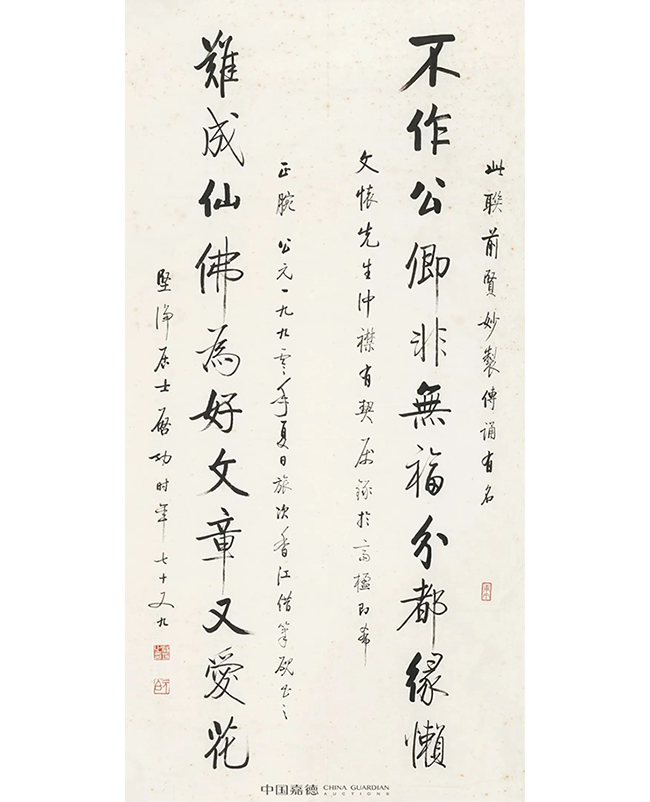 此聯前賢妙製傳誦有名
不作公卿非無福分都緣懶
文懷先生冲襟有契屬錄於高楹即希
正腕 公元一九九零年夏日旅次香江借筆硯書之
難成仙佛為好文章又愛花
堅净居士啓功时年七十又九
中国嘉德 CHINA GUARDIAN AUCTIONS